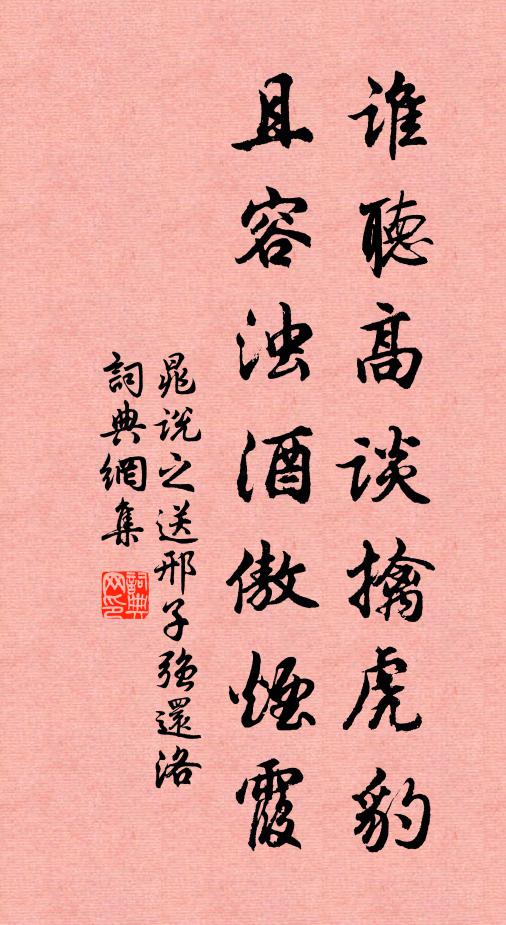 谁聴高谈擒虎豹
且容浊酒傲煙霞
晁说之送邢子强還洛
詞典網集
詞典网印